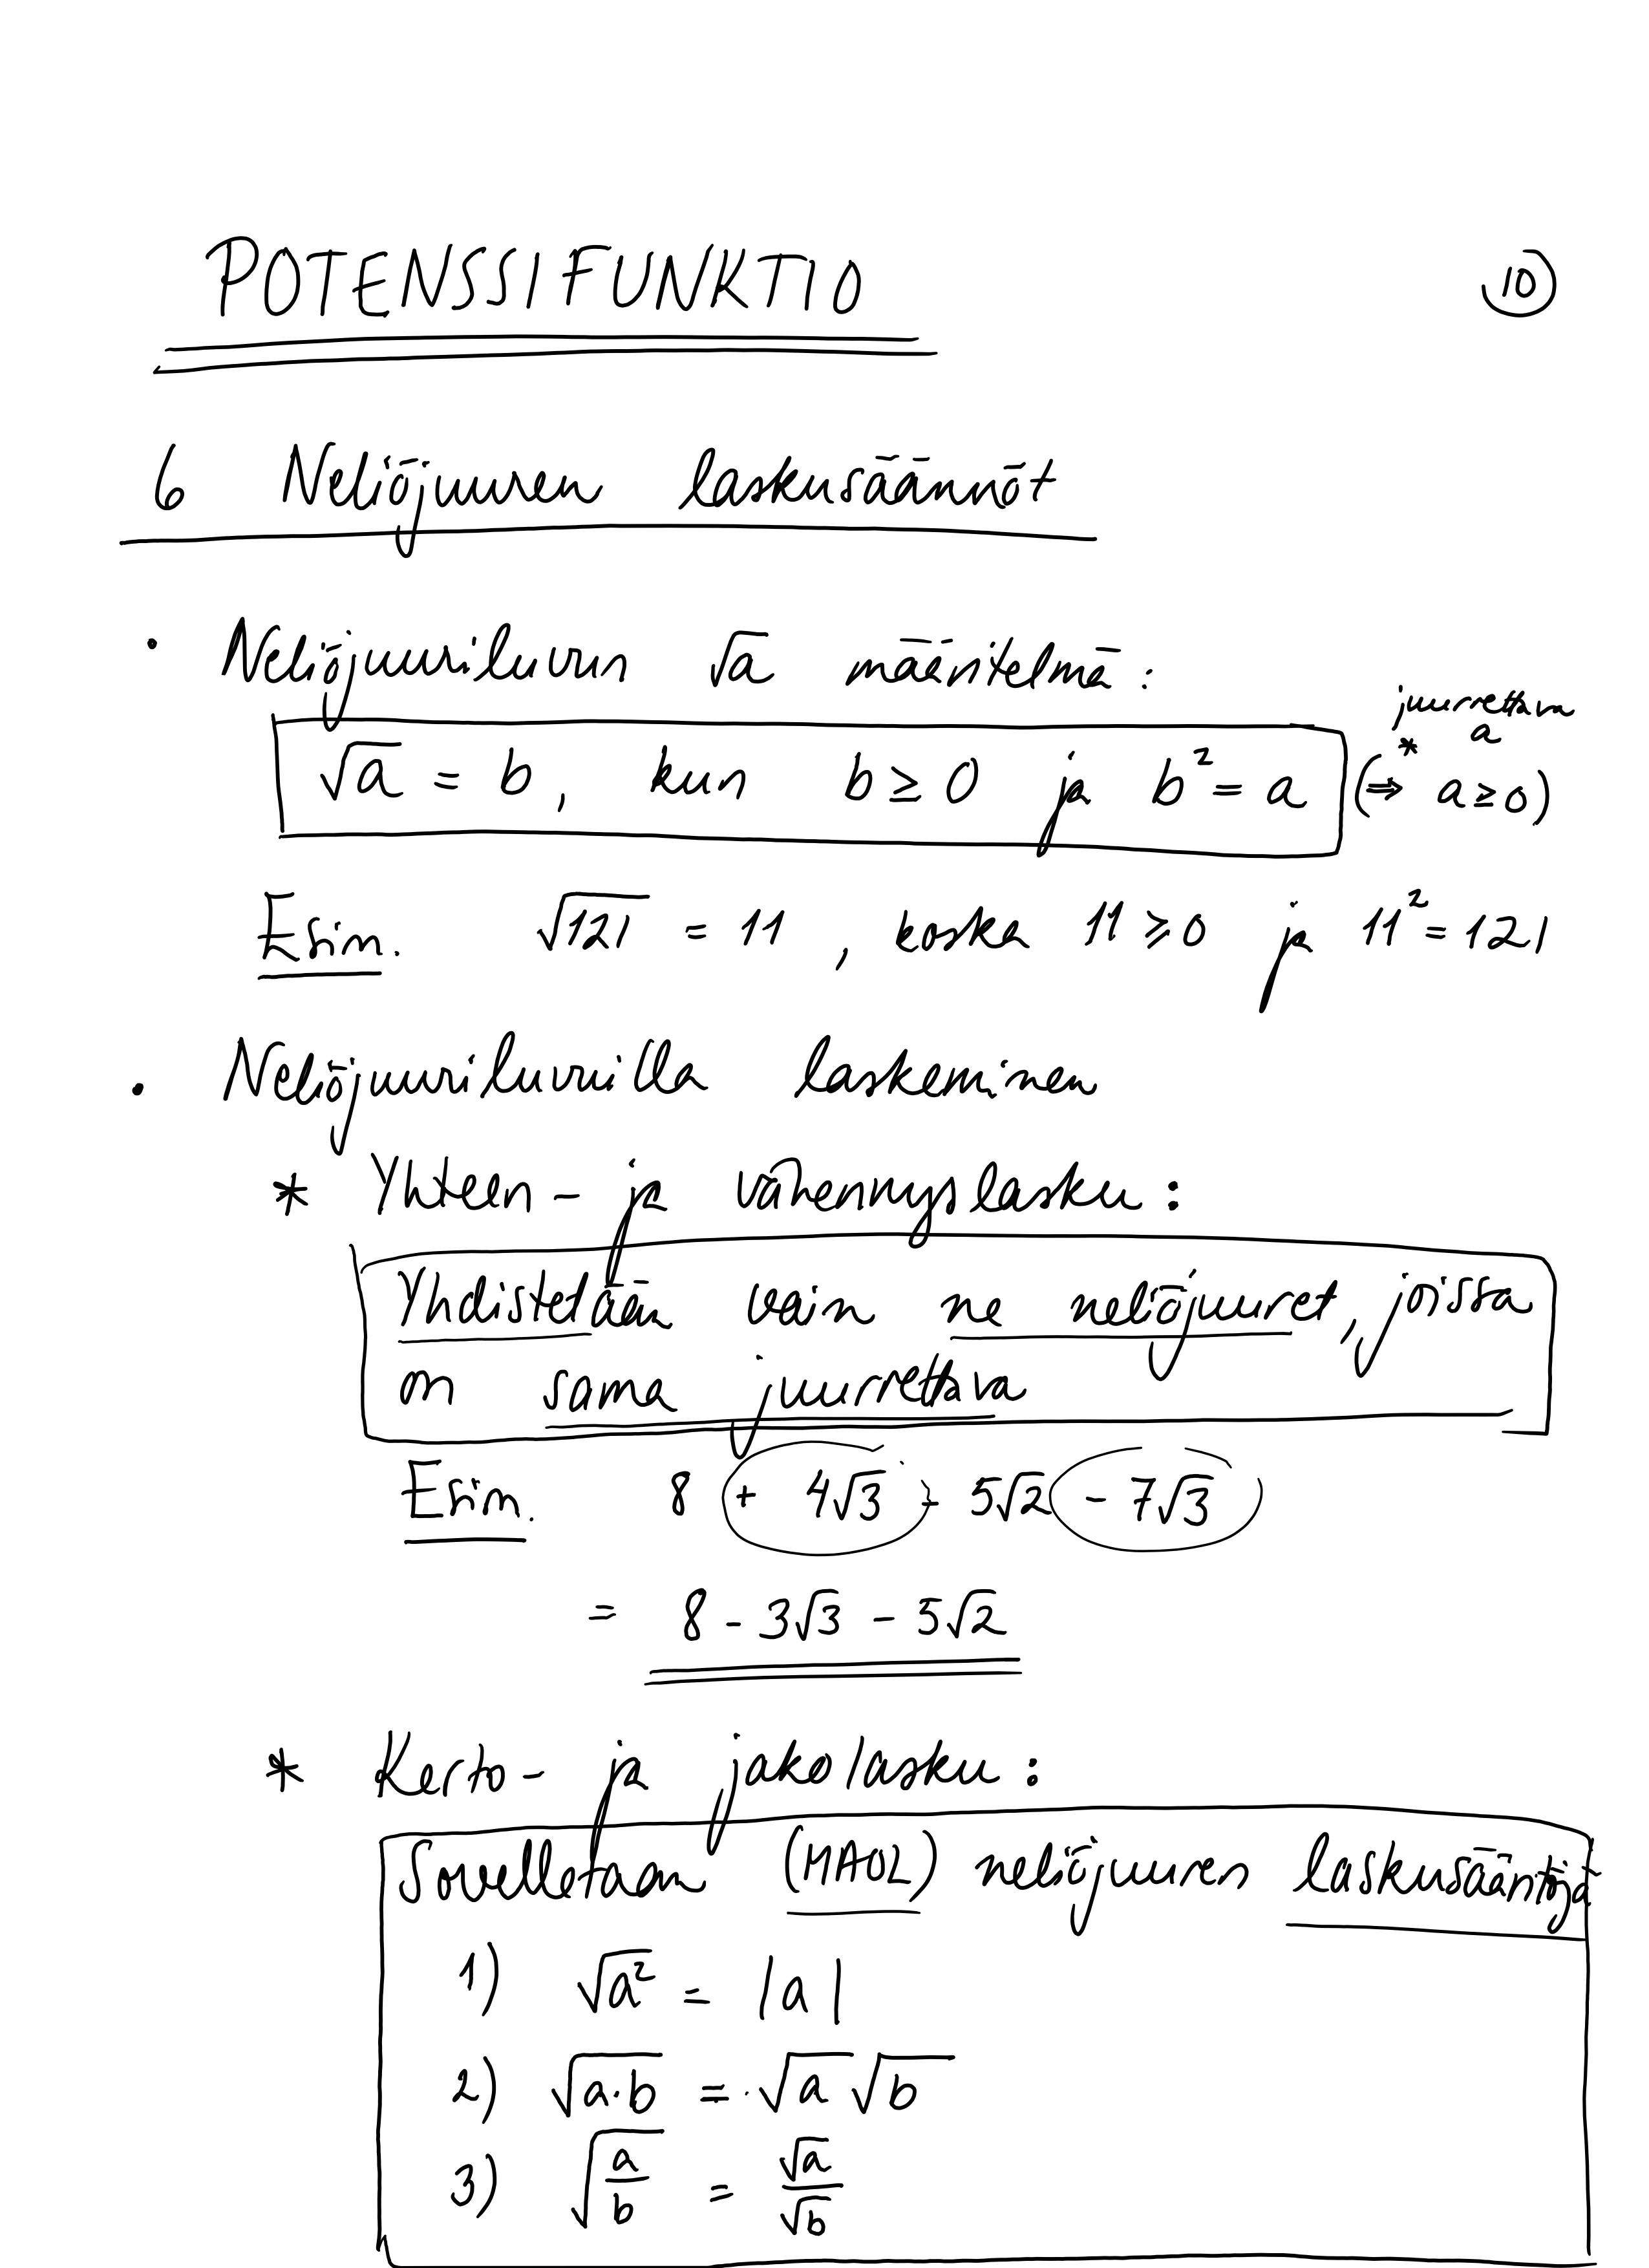 POTENSSIFUNKTIO
10
6 Neliöjuuren laskusäännöt
• Neliöjuuriluvun √a määritelmä:
juurrettava
a
√a = b, kun b ≥ 0 ja b² = a (⇒* a ≥ 0)
Esim. √121 = 11, koska 11 ≥ 0 ja 11² = 121
• Neliöjuuriluvuilla laskeminen
* Yhteen- ja vähennyslasku:
Yhdistetään vain ne neliöjuuret, joissa
on sama juurrettava
Esim. 8 + 4√3 - 5√2 - 7√3
= 8 - 3√3 - 5√2
* Kerto- ja jakolasku:
Sovelletaan (MAOL) neliöjuuren laskusääntöjä
1) √a² = |a|
2) √a·b = √a √b
3) √a/b = √a/√b